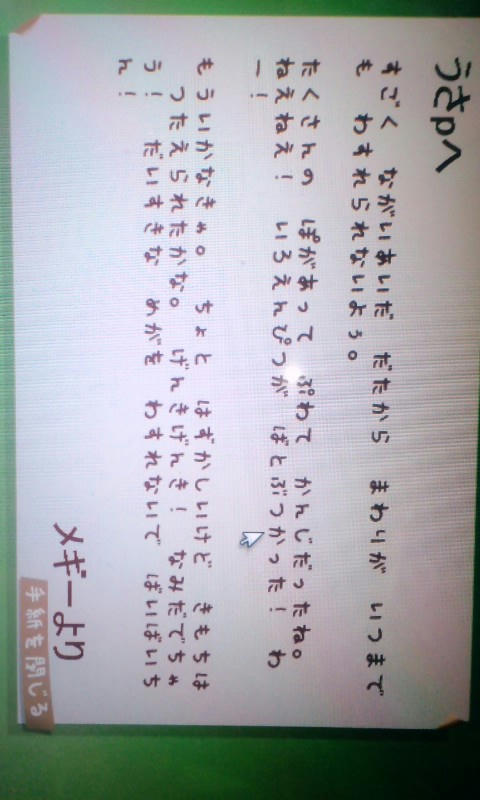 うさpへ
すごく　ながいあいだ　だたから　まわりが　いつまで
も　わすれられないよぅ。
たくさんの　ぽがあって　ぷわて　かんじだったね。
ねえねえ！　いろえんぴつが　ばとぶつかった！　わ
ー！
もういかなきゃ。　ちょと　はずかしいけど　きもちは
つたえられたかな。　げんきげんき！　なみだでちゃ
う！　だいすきな　めがを　わすれないで　ばいばいち
ん！
メギーより
手紙を閉じる